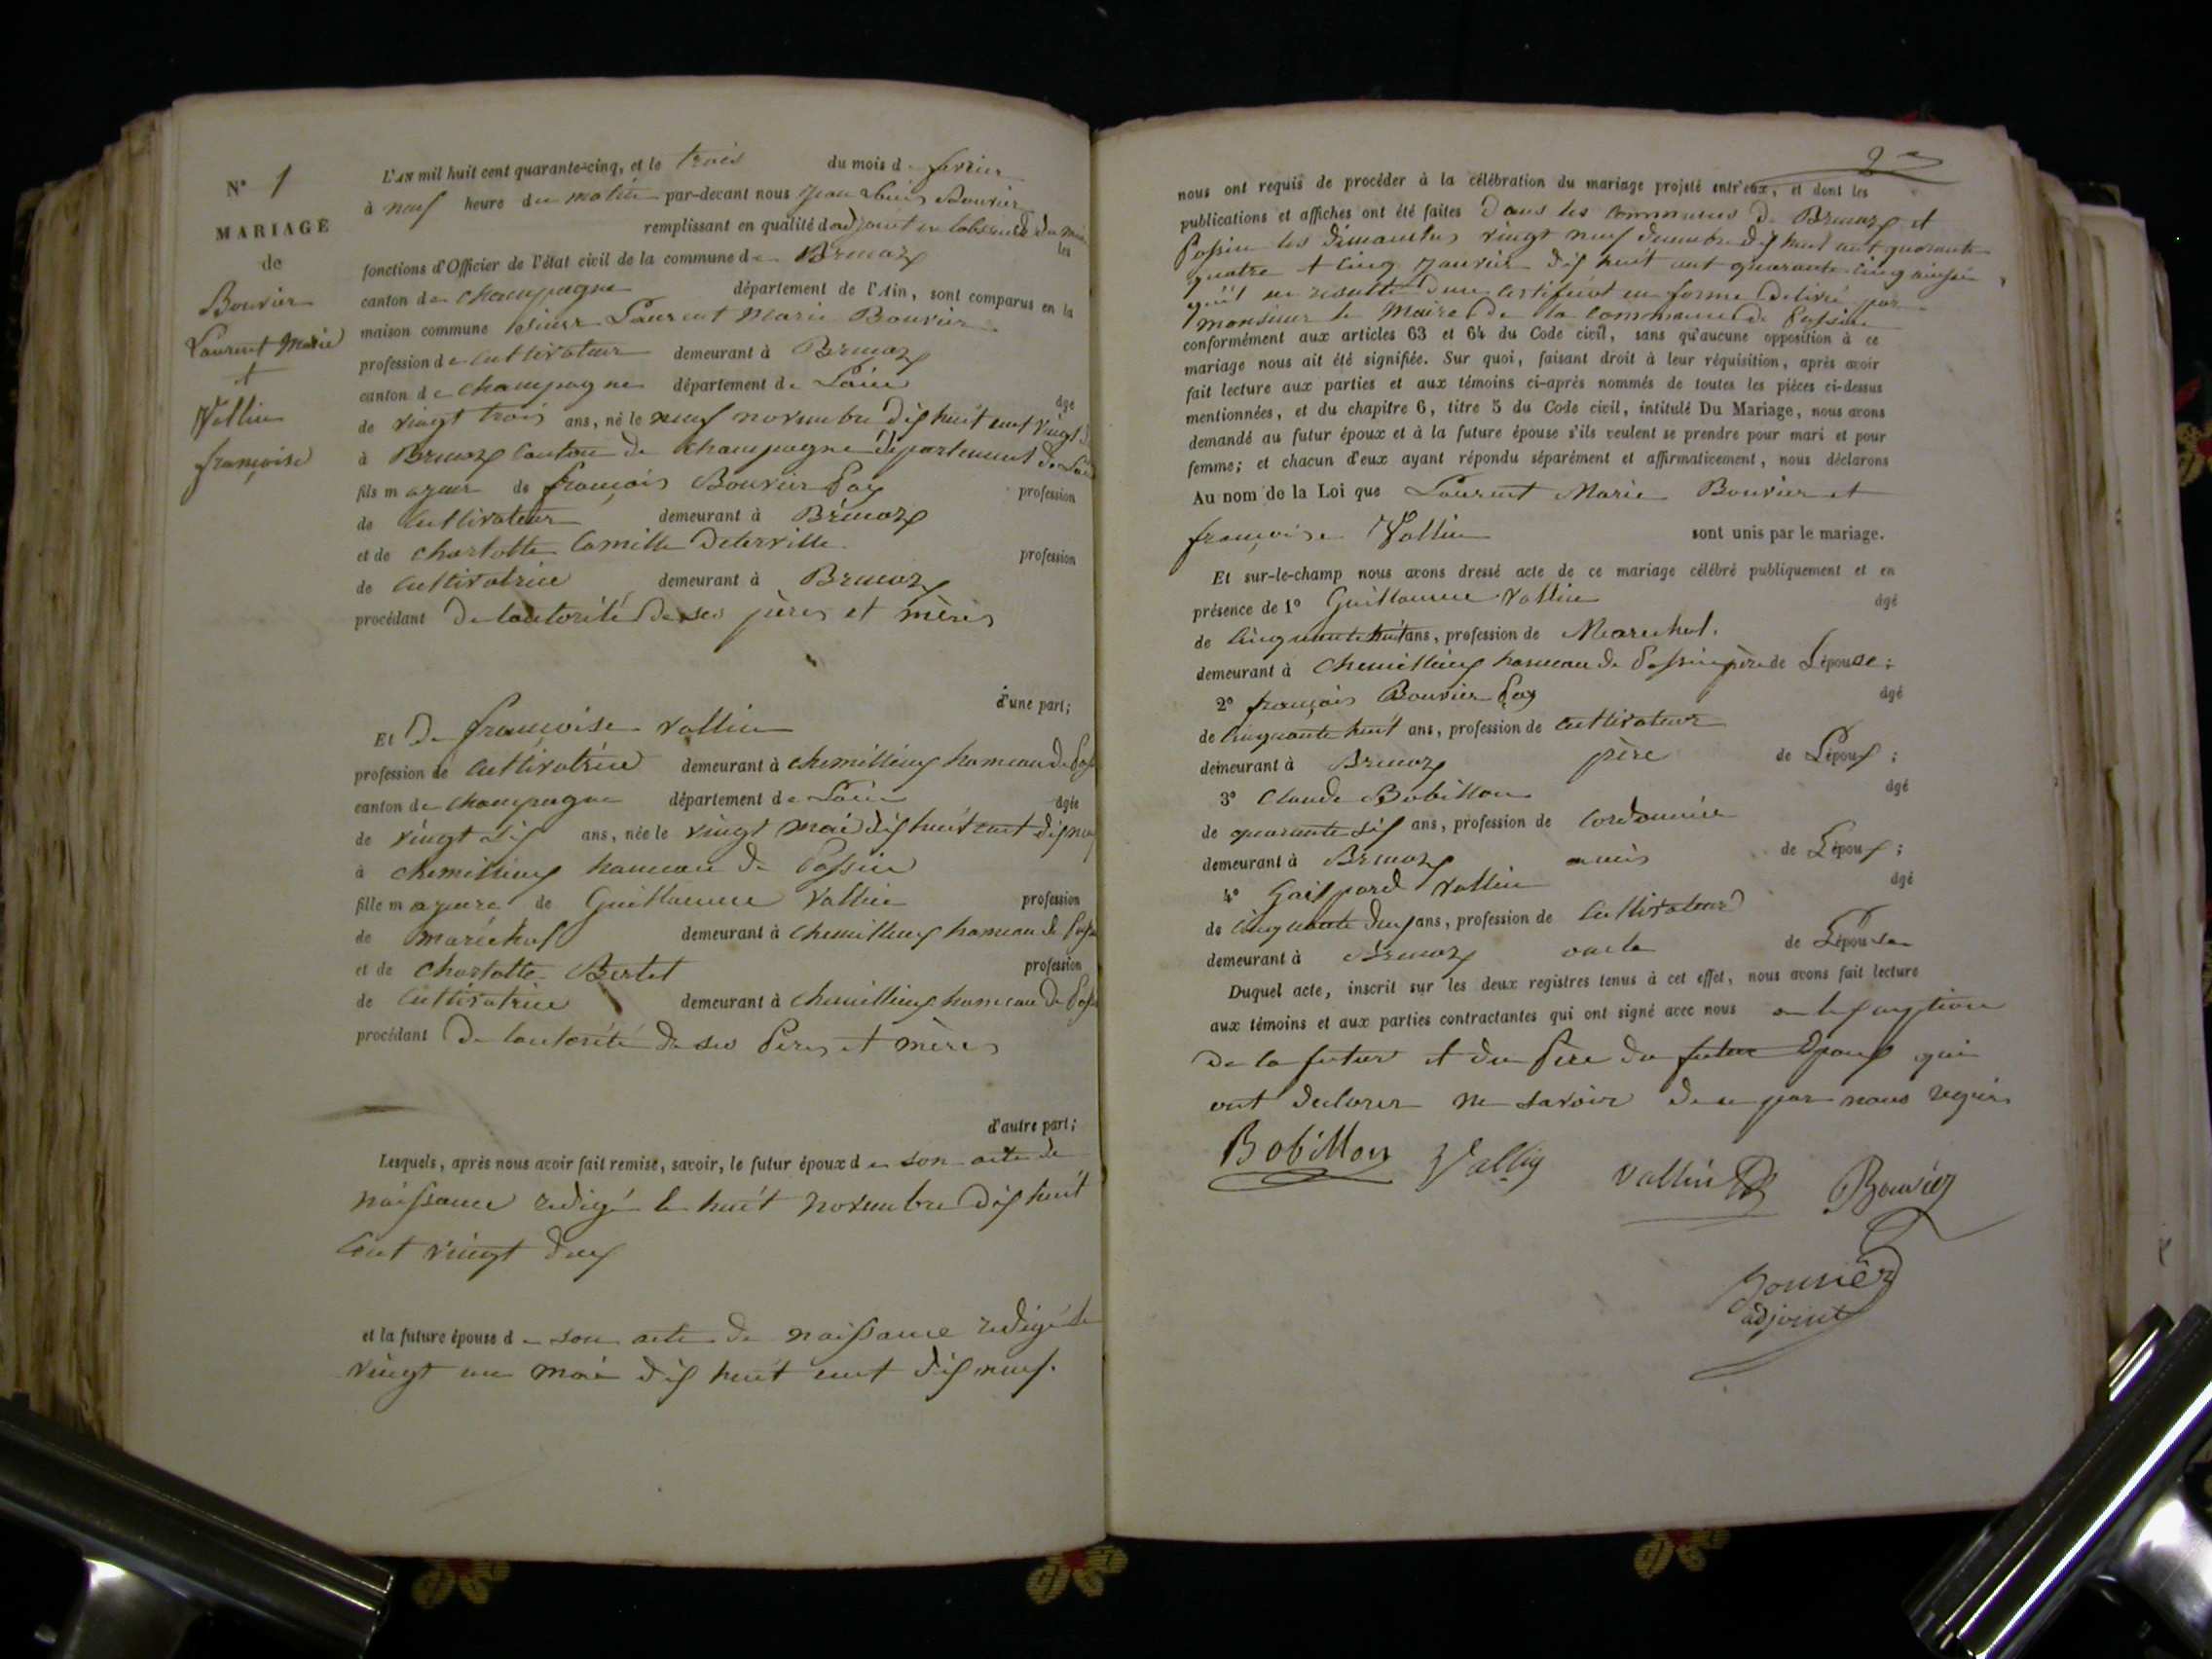 N° 1
MARIAGE
de
Bouvier
Laurent Marie
et
Vallin
françoise
L'AN mil huit cent quarante-cinq, et le trois du mois de fevrier
à neuf heure du matin par-devant nous Jean Louis Bouvier
remplissant en qualité d'adjoint en labsence du maire les
fonctions d'Officier de l'état civil de la commune de Brenaz
canton de champagne département de l'Ain, sont comparus en la
maison commune lesieur Laurent Marie Bouvier
profession de cultivateur demeurant à Brenaz
canton de champagne département de Lain âgé
de vingt trois ans, né le neuf novembre dix huit cent vingt
à Brenaz canton de champagne departement de Lain
fils majeur de françois Bouvier Pay profession
de cultivateur demeurant à Brenaz
et de charlotte Camille Delerville profession
de cultivatrice demeurant à Brenaz
procédant De lautorité de ses pères et mères
d'une part;
Et De françoise vallin
profession de cultivatrice demeurant à chemillieux hameau de
canton de champagne département de Lain âgée
de vingt six ans, née le vingt mai dix huit cent dix neuf
à chemillieux hameau de Passin
fille majeure de Guillaume Vallin profession
de maréchal demeurant à chemillieux hameau de
et de charlotte Bertet profession
de cultivatrice demeurant à chemillieux hameau de
procédant De lautorité de ses Peres et mères
d'autre part;
Lesquels, après nous avoir fait remise, savoir, le futur époux de son acte de
naissance redigé le huit novembre dix huit
cent vingt deux
et la future épouse de son acte de naissance redigé le
vingt un mai dix huit cent dix neuf.
2
nous ont requis de procéder à la célébration du mariage projeté entr'eux, et dont les
publications et affiches ont été faites Dans les communes de Brenaz et
Passin les dimanches vingt neuf decembre dix huit cent quarante
quatre et cinq janvier dix huit cent quarante cinq ainsi
qu'il en resulte d'un certificat en forme delivré par
monsieur le Maire de la commune de Passin
conformément aux articles 63 et 64 du Code civil, sans qu'aucune opposition à ce
mariage nous ait été signifiée. Sur quoi, faisant droit à leur réquisition, après avoir
fait lecture aux parties et aux témoins ci-après nommés de toutes les pièces ci-dessus
mentionnées, et du chapitre 6, titre 5 du Code civil, intitulé Du Mariage, nous avons
demandé au futur époux et à la future épouse s'ils veulent se prendre pour mari et pour
femme; et chacun d'eux ayant répondu séparément et affirmativement, nous déclarons
Au nom de la Loi que Laurent Marie Bouvier et
françoise Vallin sont unis par le mariage.
Et sur-le-champ nous avons dressé acte de ce mariage célébré publiquement et en
présence de 1° Guillaume Vallin âgé
de cinquante huit ans, profession de Marechal.
demeurant à chemillieux hameau de Passin père de Lépouse;
2° françois Bouvier Pay âgé
de cinquante huit ans, profession de cultivateur
demeurant à Brenaz père de Lépoux;
3° Claude Bobillon âgé
de quarante six ans, profession de Cordonnier
demeurant à Brenaz amis de Lépoux;
4° Gaispard Vallin âgé
de cinquante deux ans, profession de Cultivateur
demeurant à Brenaz oncle de Lépouse
Duquel acte, inscrit sur les deux registres tenus à cet effet, nous avons fait lecture
aux témoins et aux parties contractantes qui ont signé avec nous a lexception
de la future et du Père du futur Epoux qui
ont declarer ne savoir de ce par nous requis
Bobillon Vallin Vallin Bouvier
Bouvier
adjoint